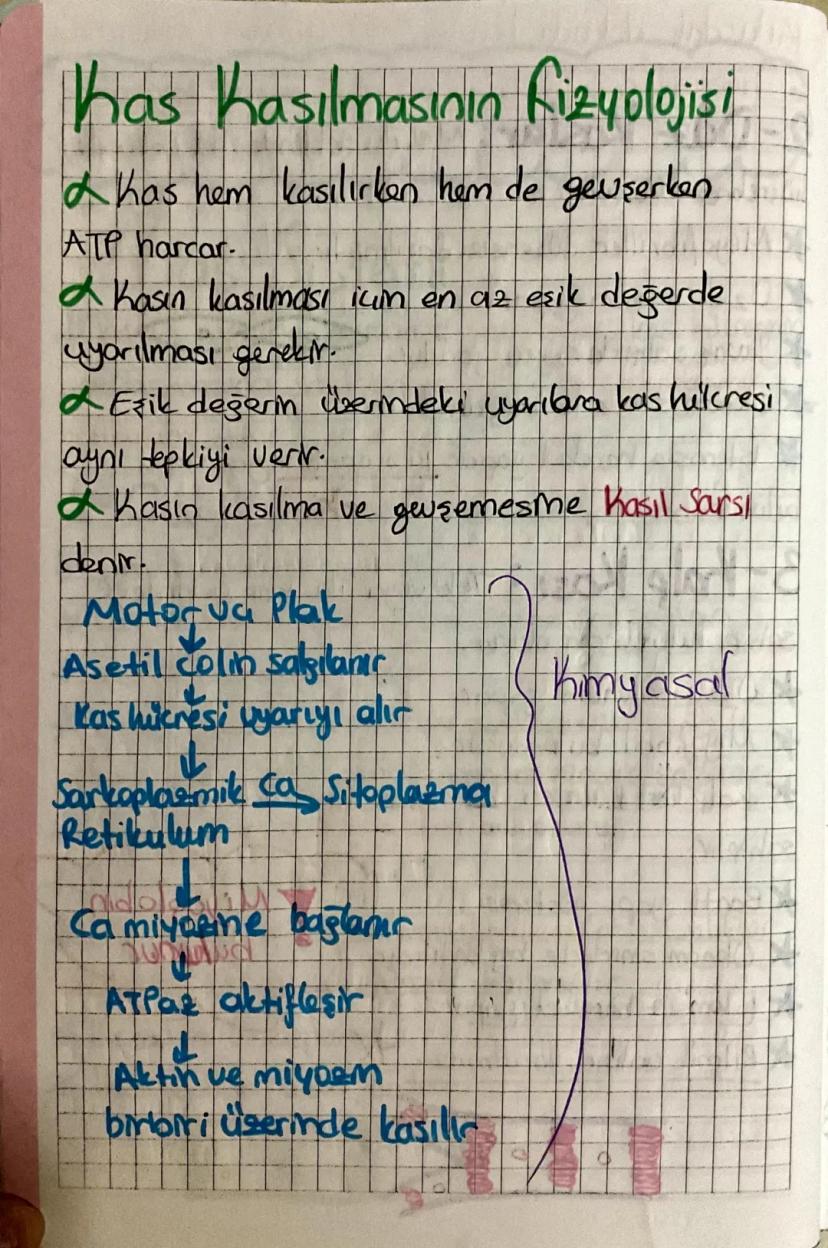 Kas Kasılmasının Fizyolojisi
α Kas hem kasılırken hem de gevşerken
ATP harcar.
α Kasın kasılması için en az eşik değerde
uyarılması gerekir.
α Eşik değerin üzerindeki uyarılara kas hücresi
aynı tepkiyi verir.
α Kasın kasılma ve gevşemesine Kasıl Sarsı
denir.
Motor uç Plak
↓
Asetil colin salgılanır
↓
Kas hücresi uyarıyı alır
↓
Sarkoplazmik Ca → Sitoplazma
Retikulum
↓
Ca miyozine bağlanır
↓
ATPaz aktifleşir
↓
Aktin ve miyozin
birbiri üzerinde kasılır
Kimyasal